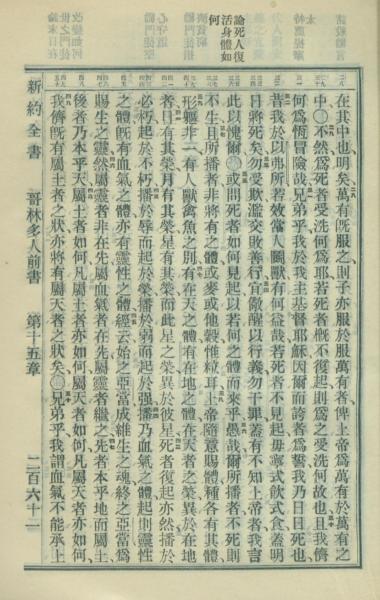 論死人復
活身體如
何
在其中也明矣萬有旣服之則子亦服於服萬有者俾上帝爲萬有於萬有之
中○不然爲死者受洗何爲耶若死者槪不復起則爲之受洗何故也且我儕
何爲恆冒險哉兄弟乎我於我主基督耶穌因爾而誇者爲誓我乃日日死也
我昔於以弗所若效常人鬭獸有何益哉若死者不見起毋寧式飲式食蓋明
日將死矣勿受欺濫交敗善行宜儆醒以行義勿干罪蓋有不知上帝者我言
此以愧爾○或問死者如何見起以若何之體而來乎愚哉爾所播者不死則
不生且所播者非將有之體或麥或他穀惟粒耳上帝隨意賜體種各有其體
形軀非一有人獸禽魚之別有在天之體有在地之體在天者之榮異於在地
者日有其榮月有其榮星有其榮而此星之榮異於彼星死者復起亦然播於
必朽起於不朽播於辱而起於榮播於弱而起於强播乃血氣之體起則靈性
之體旣有血氣之體亦有靈性之體經云始之亞當成維生之魂終之亞當爲
賜生之靈然屬靈者非在先屬血氣者在先屬靈者繼之先者本乎地而屬土
後者乃本乎天屬土者如何凡屬土者亦如何屬天者如何凡屬天者亦如何
我儕旣有屬土者之狀亦將有屬天者之狀矣○兄弟乎我謂血氣不能承上
新約全書 哥林多人前書 第十五章 二百六十二